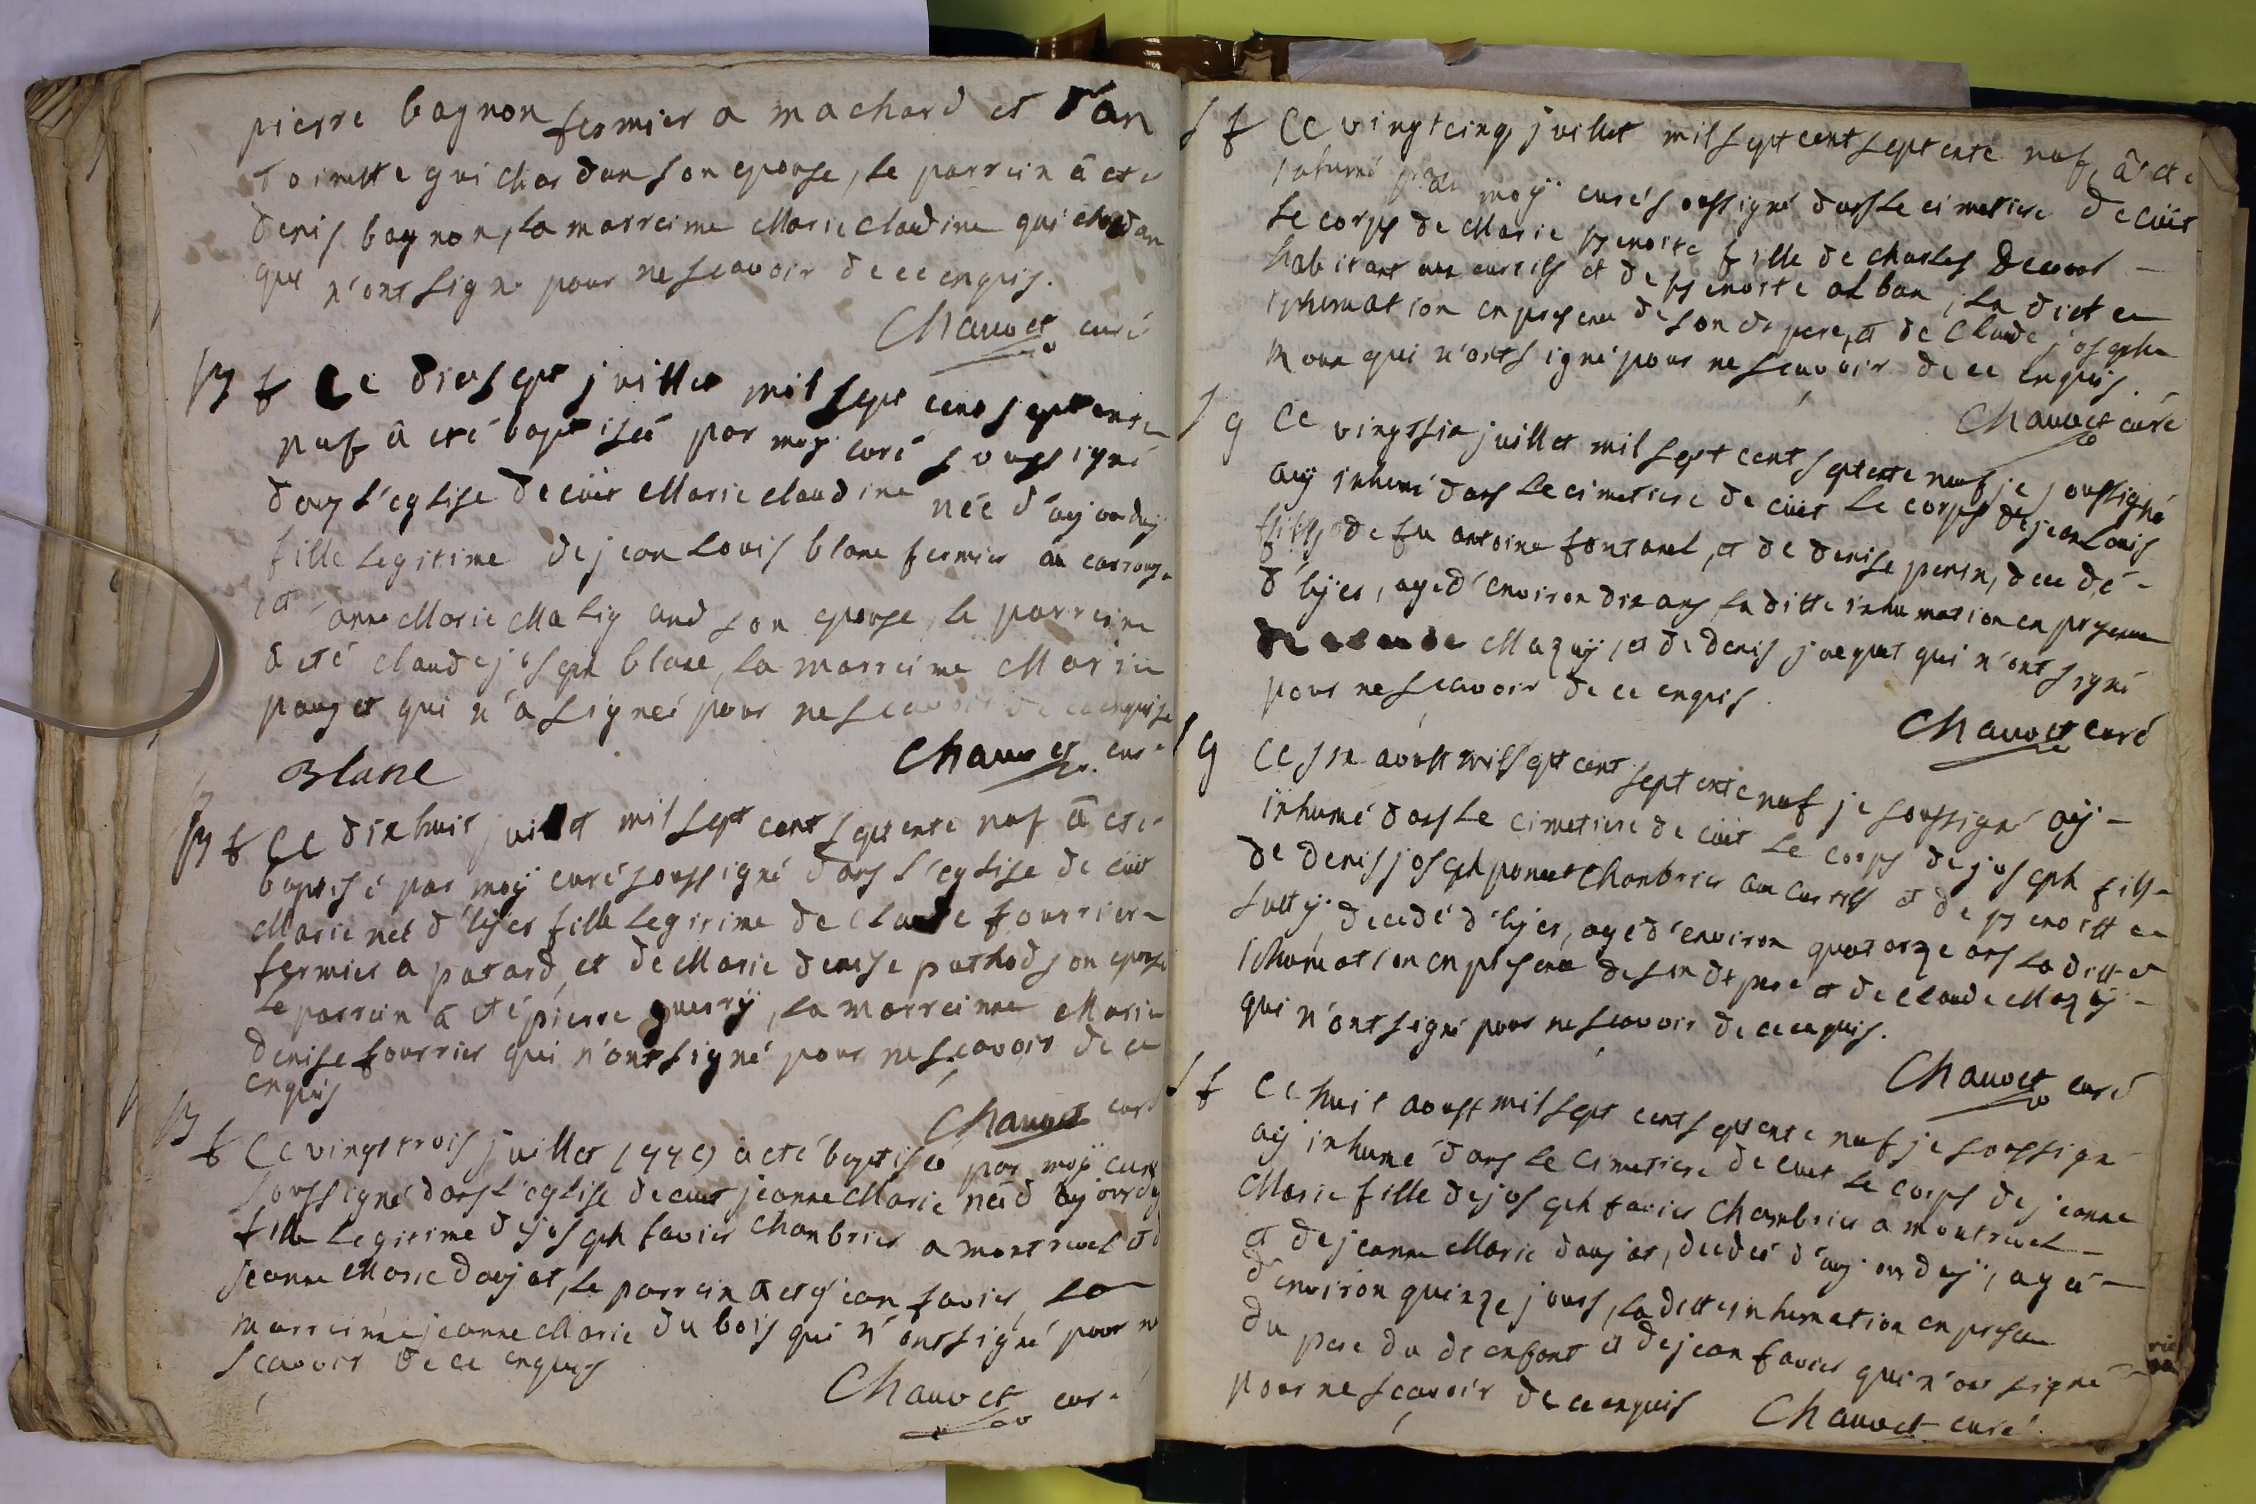 pierre bagnon fermier a machard et d'an
toinette guichardan son epouse, le parrein â eté
denis bagnon, la marreinne Marie claudine guichardan
qui n'ont signé pour ne scavoir de ce enquis.
Chauvet curé
B f Ce dix sept juillet mil sept cent septente
neuf â eté baptisée par moÿ curé soussigné
dans l'eglise de cüet Marie claudine née d'aujourduÿ
fille legitime de jean Louis blanc fermier au carrouge
et anne Marie Maligand son epouse, le parreinne
â eté claude joseph blanc, la marreinne Marie
pauget qui n'a signée pour ne scavoir de ce enquise
Blanc
Chauvet curé
B f Ce dix huit juillet mil sept cent septente neuf â eté
baptisé par moÿ curé soussigné dans l'eglise de cüet
Marie neé d'hÿer fille legitime de claude fourrier
fermier a patard, et de Marie denise puthod son epouse
le parrein â eté pierre guerrÿ, la marreinne Marie
denise fourrier qui n'ont signé pour ne scavoir de ce
enquis
Chauvet curé
B f Ce vingt trois juillet 1779 â eté baptiseé par moÿ curé
soussigné dans l'eglise de cuet jeanne Marie née d'aujourduÿ
fille legitime de joseph favier chanbrier a montrevel et de
jeanne Marie daujat, le parrein â eté jean favier, la
marreinne jeanne Marie du bois qui n'ont signé pour ne
scavoir de ce enquis
Chauvet curé
S f Ce vingt cinq juillet mil sept cent septente neuf, â eté
inhumé par moÿ curé soussigné dans le cimetiere de cüet
le corps de Marie benoite fille de charles
habitant aux curtils et de benoite alban, la ditte
inhumation en presence de son dt pere, et de Claude joseph
qui n'ont signé pour ne scavoir de ce enquis.
Chauvet curé
S g Ce vingt six juillet mil sept cent septente neuf je soussigné
aÿ inhumé dans le cimetiere de cüet le corps de jean Louis
fils de fu antoine fontanel, et de denise perrin, decedé
d'hÿer, agé d'environ dix ans, la ditte inhumation en presence
de claude Mazuÿ, et de denis jacquet qui n'ont signé
pour ne scavoir de ce enquis
Chauvet curé
S g Ce six aoust mil sept cent septente neuf je soussigné aÿ
inhumé dans le cimetiere de cüet le corps de joseph fils
de denis joseph poncet chanbrier aux curtils et de benoitte
decedé d'hÿer, agé d'environ quatorze ans la ditte
inhumation en presence de son dt pere et de claude Mazuÿ
qui n'ont signé pour ne scavoir de ce enquis.
Chauvet curé
S f Ce huit aoust mil sept cent septente neuf je soussigné
aÿ inhumé dans le cimetiere de cuet le corps de jeanne
Marie fille de joseph favier chambrier a montrevel
et de jeanne Marie daujat, decedeé d'aujourduÿ, agéé
d'environ quinze jours, la ditte inhumation en presence
du pere du dt enfant et de jean favier qui n'ont signé
pour ne scavoir de ce enquis
Chauvet curé